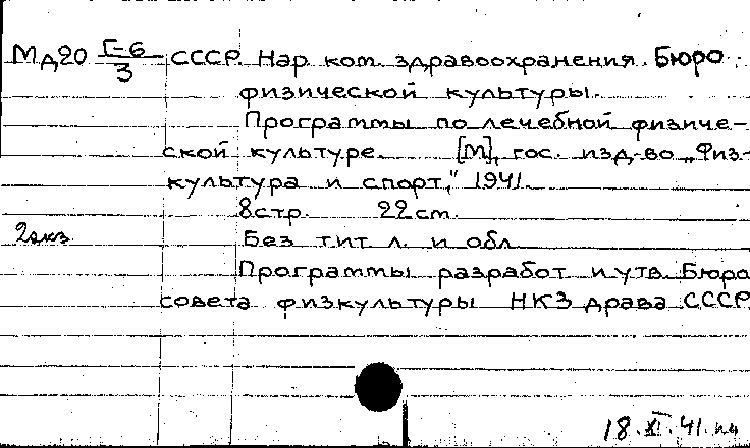 Мд20 I-6/3 СССР. Нар. ком. здравоохранения. Бюро
физической культуры.
Программы по лечебной физиче-
ской культуре. [М], гос. изд-во „Физ-
культура и спорт," 1941.
8 стр. 22 cm.
2 экз. Без тит. л. и обл.
Программы разработ. и утв. Бюро
совета физкультуры НКЗ драва СССР.
18.XI.41.